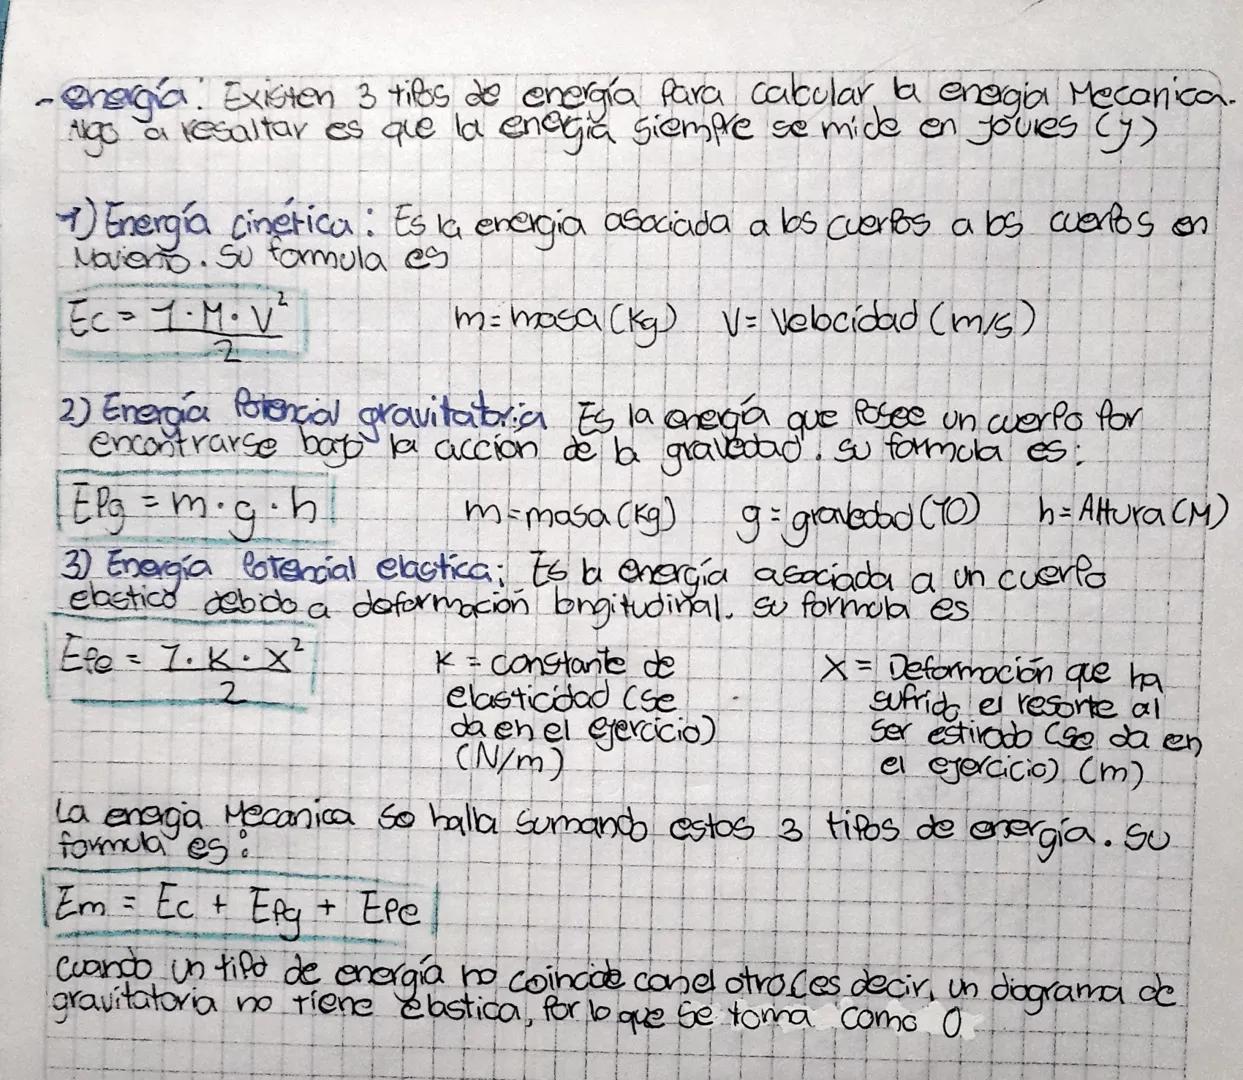 - energía: Existen 3 tipos de energía para calcular la energia Mecanica.
Algo a resaltar es que la energía siempre se mide en joules (y)
1) Energía cinética: Es la energia asociada a los cuerpos a los cuerpos en
Moviento. Su formula es
Ec = 1·M·V²
2
m=masa (Kg) V= Velocidad (m/s)
2) Energía Potencial gravitatoria Es la energía que Posee un cuerpo por
encontrarse bajo la acción de la gravedad. su formula es:
EPg = m·g·h
m=masa (Kg) g=gravedad (10) h= Altura (M)
3) Energía Potencial elastica: Es la energía asociada a un cuerpo
elastico debido a deformación longitudinal. su formula es
Epe = 1·K·X²
2
K = constante de
elasticidad (se
da en el ejercicio)
(N/m)
X = Deformación que ha
sufrido el resorte al
ser estirado (se da en
el ejercicio) (m)
La energia Mecanica se halla sumando estos 3 tipos de energía. Su
formula es:
Em = Ec + Epg + Epe
Cuando un tipo de energía no coincide con el otro (es decir, un diagrama de
gravitatoria no tiene elastica, Por lo que se toma como 0